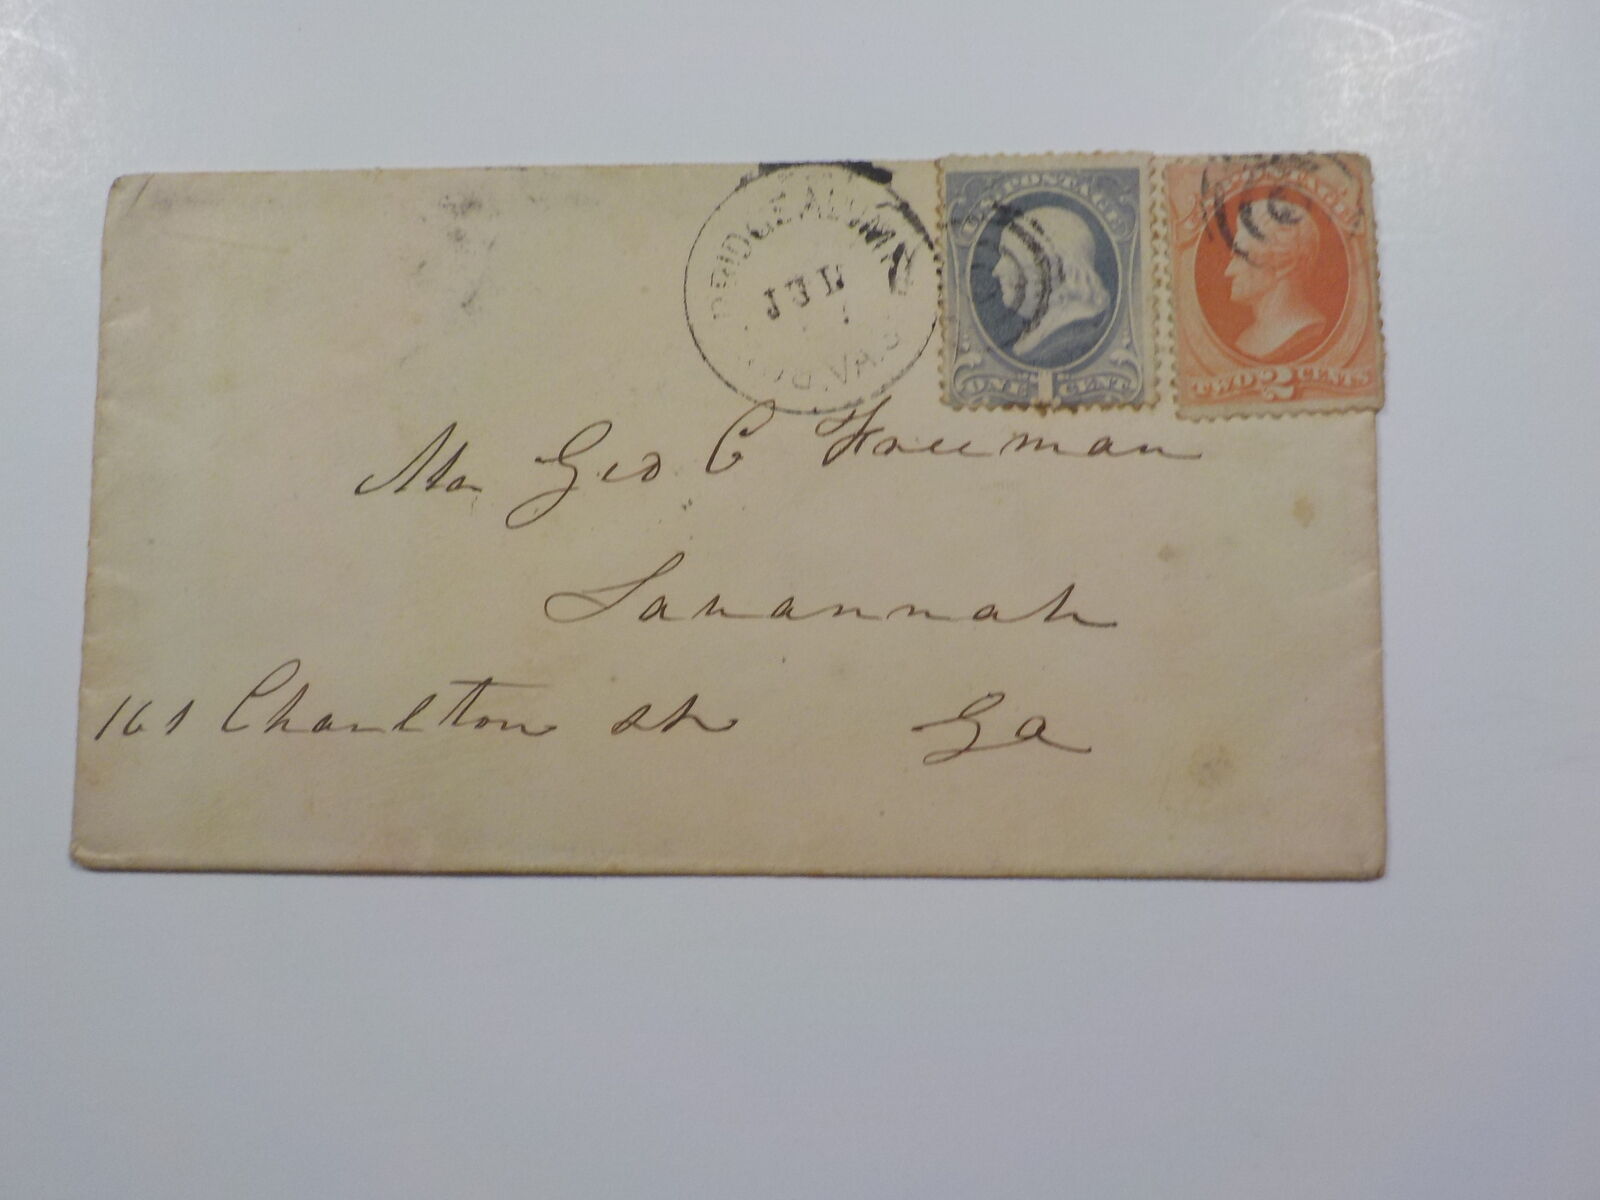 BRIDGE ALUM
JUL
CO. VA. S
U.S. POSTAGE
ONE 1 CENT
POSTAGE
TWO 2 CENTS
Mr Geo C Freeman
Savannah
161 Charlton St Ga